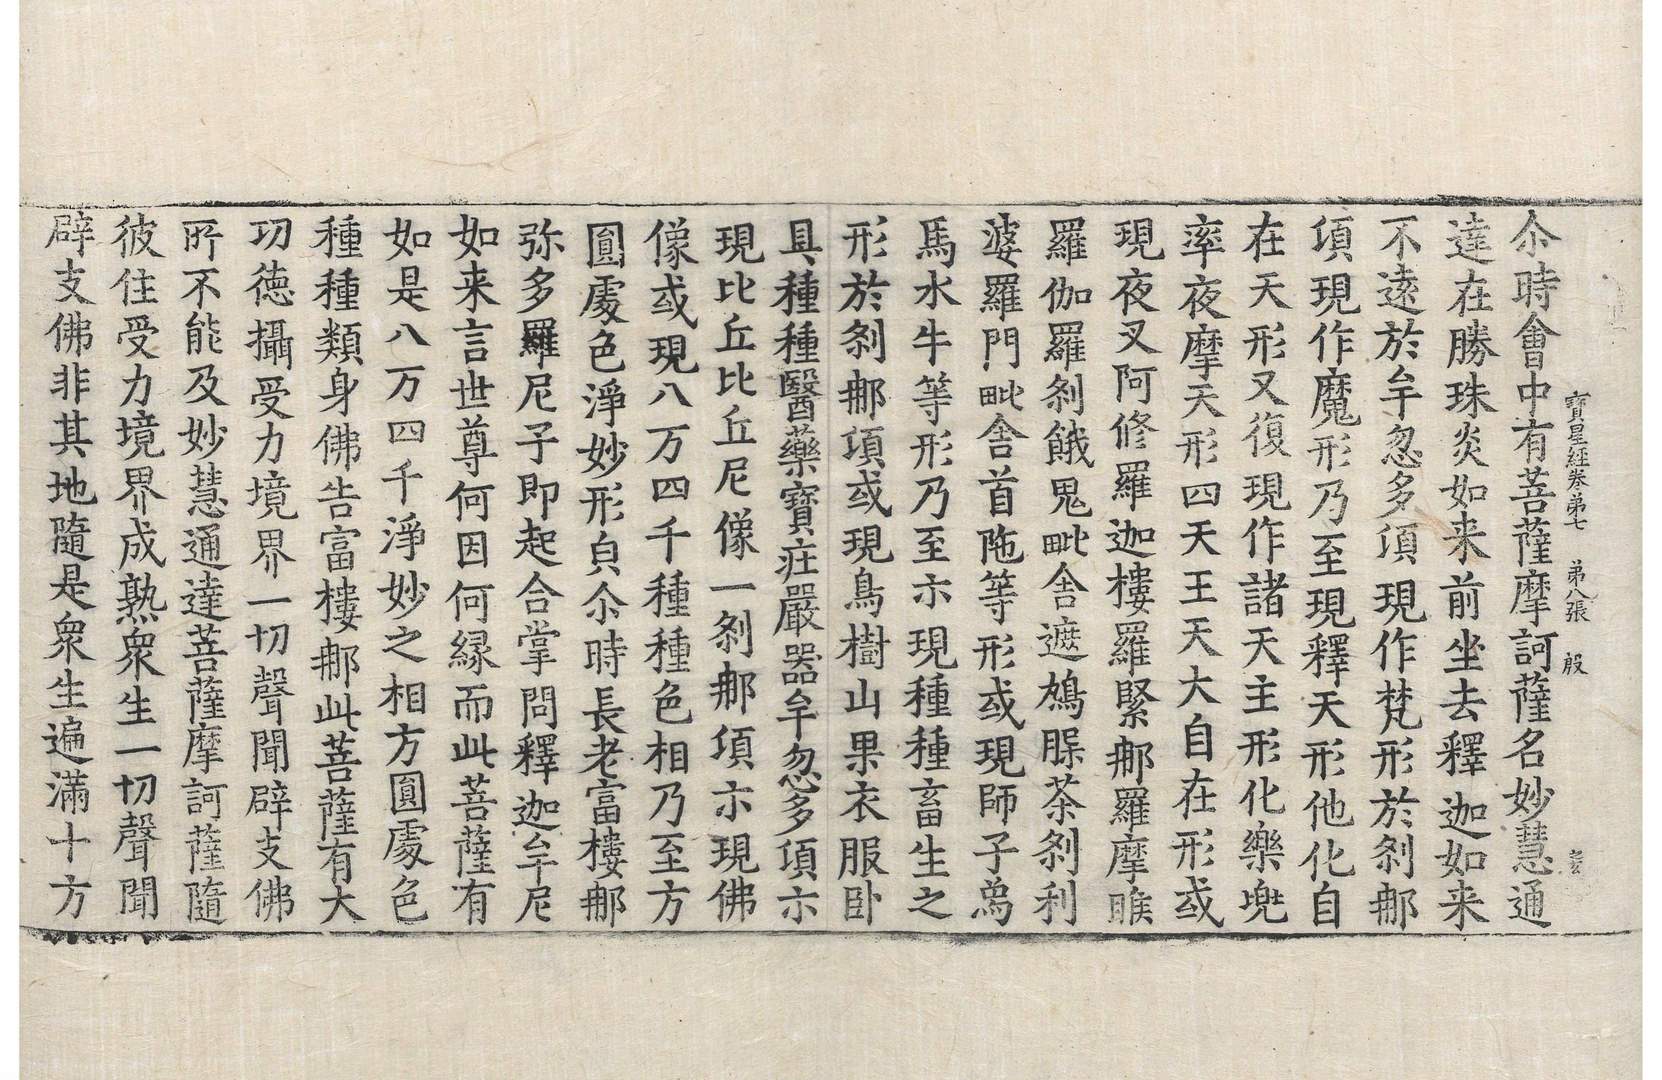 寶星經卷第七　第八張　殷
尒時會中有菩薩摩訶薩名妙慧通
達在勝珠炎如来前坐去釋迦如来
不遠於牟忽多湏現作梵形於刹那
湏現作魔形乃至現釋天形他化自
在天形又復現作諸天主形化樂兠
率夜摩天形四天王天大自在形或
現夜叉阿修羅迦樓羅緊那羅摩睺
羅伽羅刹餓鬼毗舍遮鳩䐗茶刹利
婆羅門毗舍首陁等形或現師子爲
馬水牛等形乃至亦現種種畜生之
形於刹那湏或現鳥樹山果衣服卧
具種種醫藥寶莊嚴器牟忽多湏亦
現比丘比丘尼像一刹那湏亦現佛
像或現八万四千種種色相乃至方
圓處色淨妙形㒵尒時長老富樓那
弥多羅尼子即起合掌問釋迦牟尼
如来言世尊何因何縁而此菩薩有
如是八万四千淨妙之相方圓處色
種種類身佛告富樓那此菩薩有大
功德攝受力境界一切聲聞辟支佛
所不能及妙慧通達菩薩摩訶薩隨
彼住受力境界成熟衆生一切聲聞
辟支佛非其地隨是衆生遍滿十方